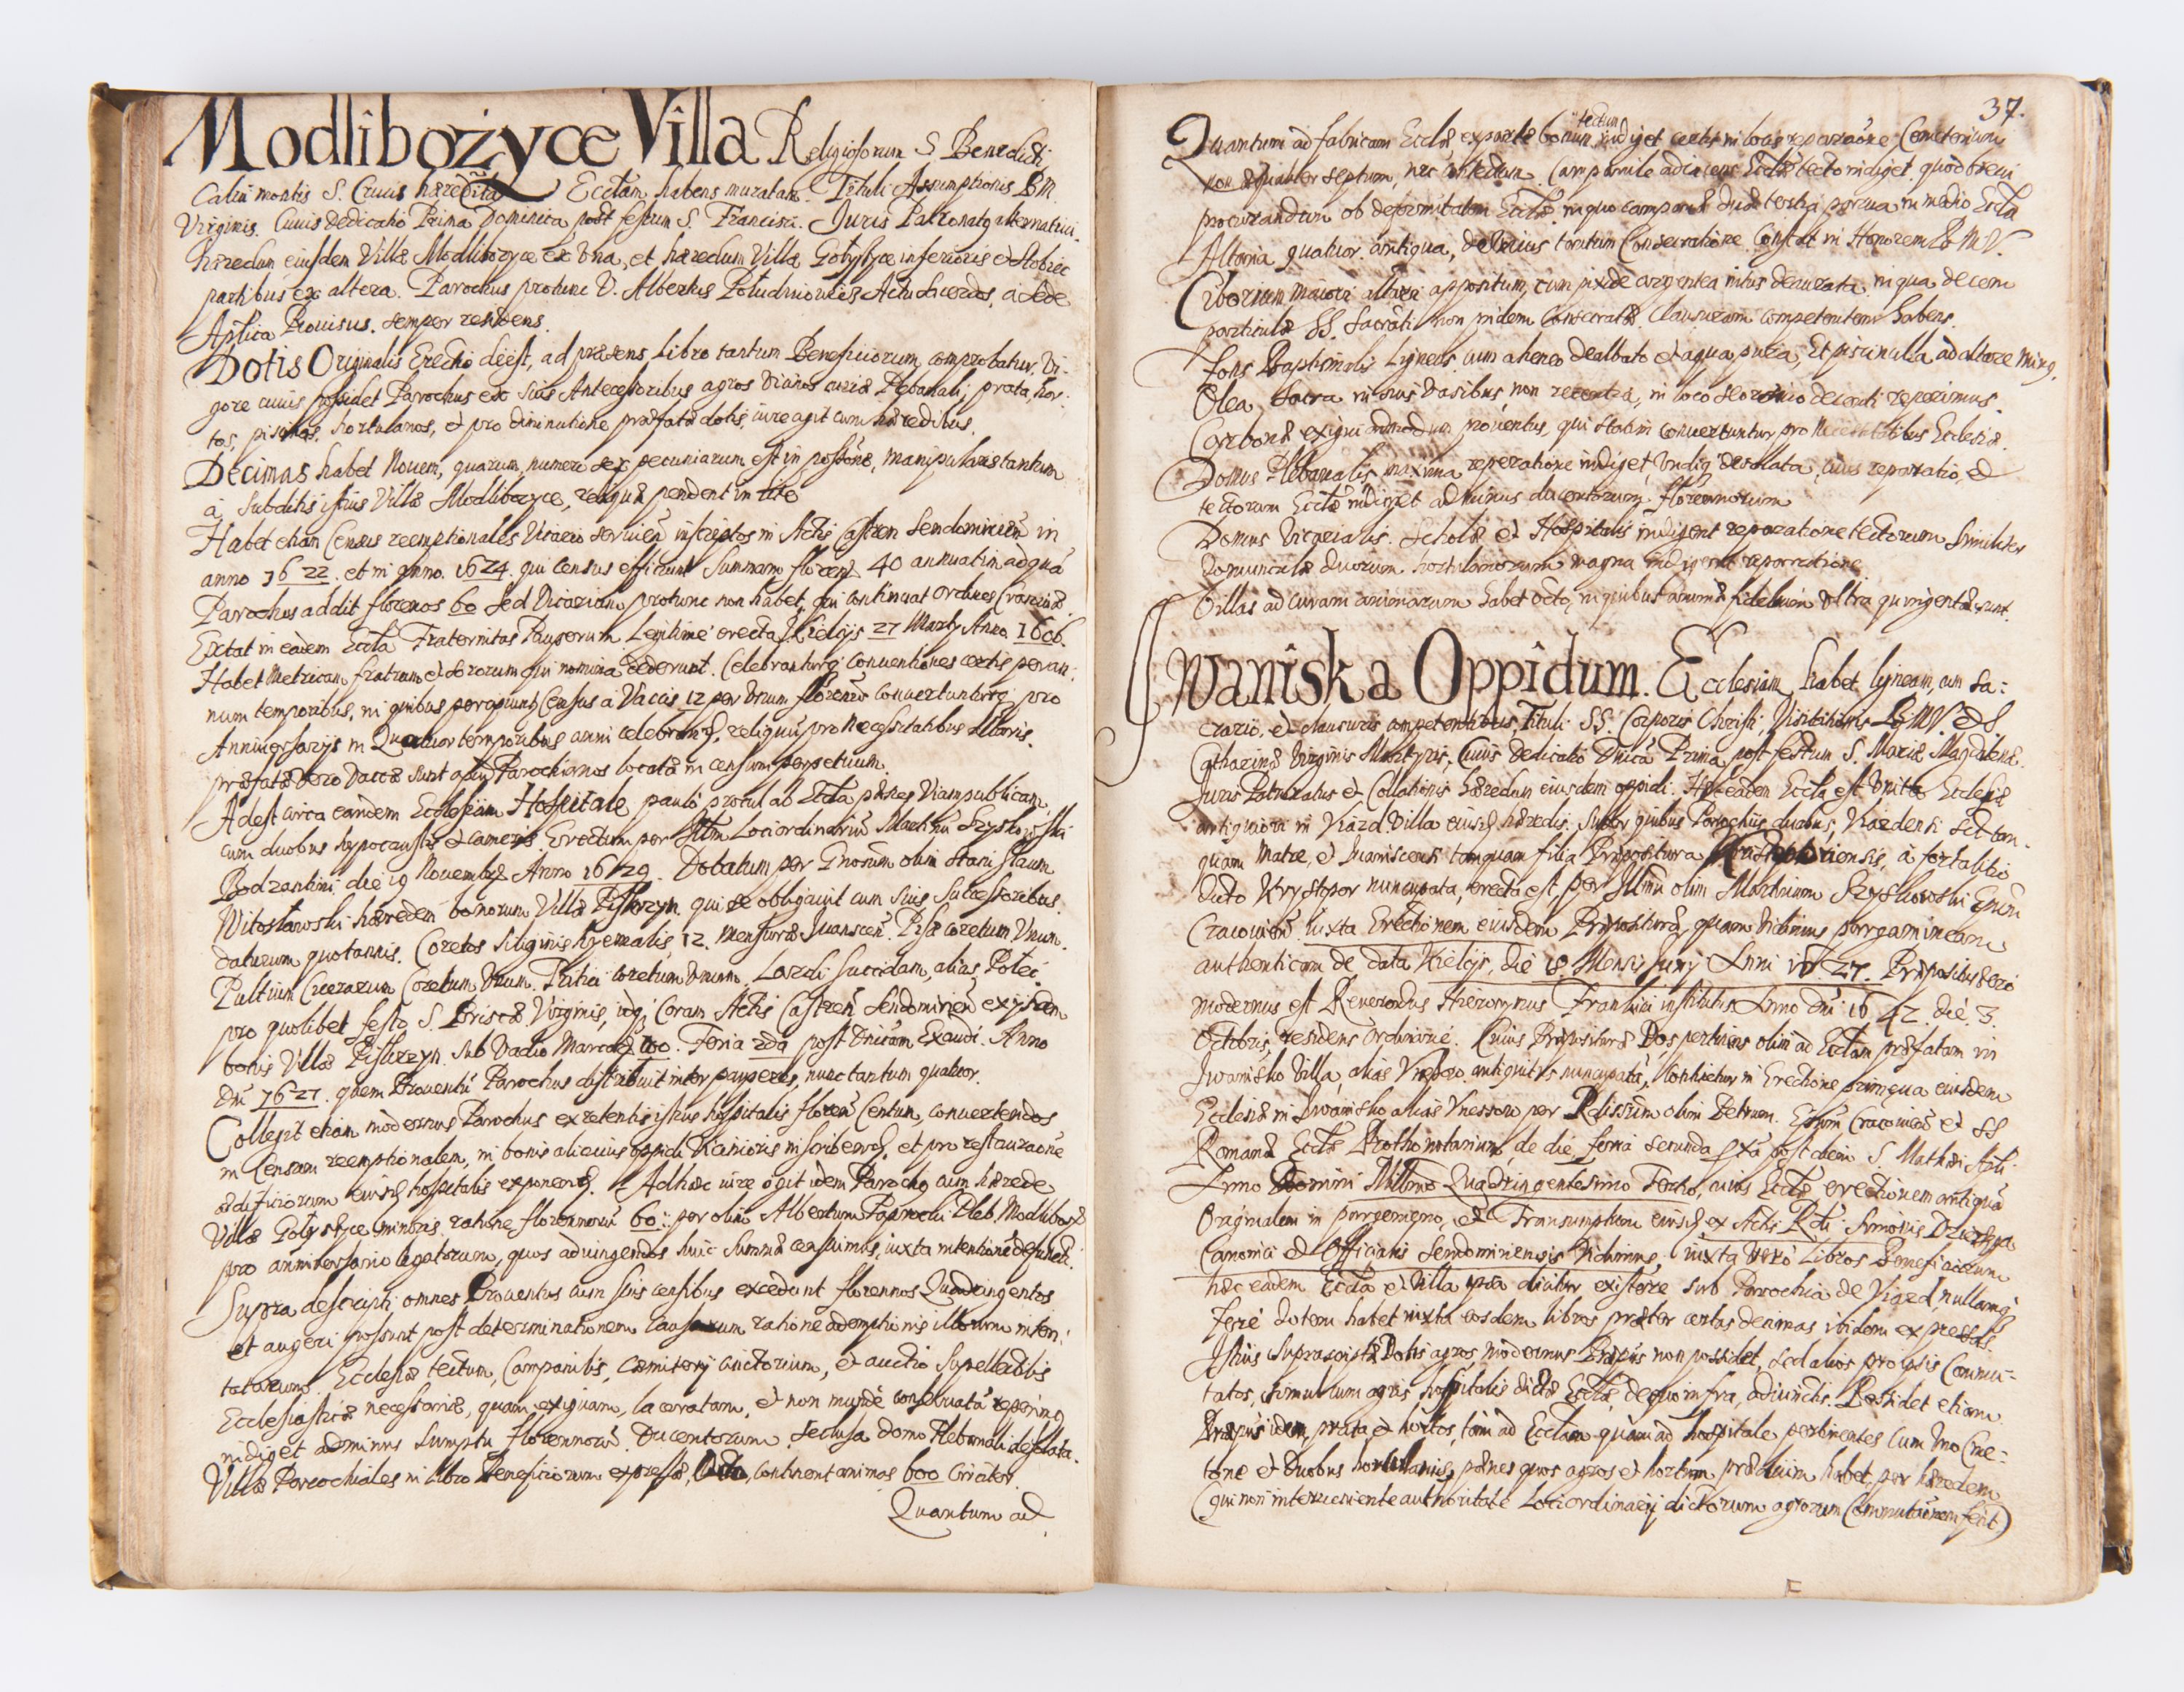 Modlibożyce Villa Religiosorum S. Benedicti
Calui montis S. Crucis hæredita Ecctam habens muratam. Tituli Assumptionis B.M.
Virginis. Cuius dedicatio Prima Dominica post festum S. Francisci. Juris Patronatq alternatiui.
hæredum eiusdem Villæ Modlibozyce ex Una, et hæredum Villæ Gołyszyce inferioris et Stobiec
partibus ex altera. Parochus protunc V. Albertus Actu sacerdos, a Sede
Aptica Prouisus. semper residens.
Dotis Originalis Erectio deest, ad præsens Libro tantum Beneficiorum comprobatur. Vi-
gore cuius possidet Parochus ex suis Antecessoribus agros Plebanali, prata, hor-
tos, piscinas, hortulanos, et pro diminutione præfatæ dotis, iure agit cum hæredibus.
Decimas habet Nouem, quarum, numero sex pecuniarum est in possone, manipulares tantum
à Subditis istius Villæ Modlibozyce, reliquæ pendent in lite
Habet etiam Census reemptionales Vicario seruien inscriptos in Actis Castren Sendomirien in
anno 1622. et in anno. 1624. qui census efficiunt Summam floren 40 annuatim ad quã
Parochus addit florenos 60 sed Vicarium protunc non habet, qui continuat ordines Cracouiæ.
Extat in eadem Eccla Fraternitas Pauperum Legitimé erecta Kielcijs 27 Martij Anno
Habet Metricam fratrum et sororum qui nomina dederunt. Celebranturq conuentiones certis per an-
num temporibus, in quibus percipiunt Census à Vaccis 12 per Unum florenum conuertunturq pro
Anniuersarijs in Quatuor temporibus anni celebrand, reliquũ pro Necessitatibus Altaris.
præfatæ Vero Vaccæ sunt apud Parochianos locatæ in censum perpetuum
Adest circa eandem Ecclesiam Hospitale pauló procul ab Eccla penes Viam publicam
cum duobus hypocaustis et cameris. Erectum per Illm Lociordinariũ Martinũ Szyszkowski
Bodzantini die 19 Nouembr Anno 1629. Dotatum per Gnosum olim Stanislaum
Witosławski hæredem bonorum Villæ Piskrzyn. qui se obligauit cum suis Successoribus.
daturum quotannis. Coretos Siliginis hyemalis 12. mensuræ Iuanscen. Pisæ coretum Unum.
Pultium Cicerarum Coretum Unum. Tritici coretum Unum. Lardi succidam, alias Połeć
pro quolibet festo S. Priscæ Virginis, idq; Coram Actis Castren Sendomirien ex ijsdem
bonis Villæ Piskrzyn. sub Vadio Marcar 100. Feria 2da post Dnicam Exaudi. Anno
Dni 1627. quem Prouentũ Parochus distribuit inter pauperes, nunc tantum quatuor.
Collegit etiam modernus Parochus ex retentis istius hospitalis floren Centum, conuertendos
in Censum reemptionalem, in bonis alicuius oppidi Vicinioris inscribend. et pro restauraone
ædificiorum eiusd hospitalis exponend. Adhæc iure agit idem Parochq cum hærede
Villæ Gołyszyce minoris. ratione florennorũ 60. per olim Albertum Paprocki Pleb. Modliboz
pro anniuersario legatorum, quos aduingendos huic Summæ censuimus, iuxta intentionẽ defuncti.
Supra descripti omnes Prouentus cum suis censibus excedunt florennos Quadringentos
et augeri possunt post determinationem causarum ratione ademptionis illorum inten-
tatarum. Ecclesiæ tectum, Campanilis, cæmiterij , et auctio Supellectilis
Ecclesiasticæ necessariæ, quam exiguam, laceratam, et non mundé conseruatã reperimq
indiget adminus sumptu florennorũ Ducentorum. seclusa domo Plebanali desolata.
Villæ Parochiales in libro Beneficiorum expressæ, Octo, continent animas 600 circiter.
Quantum ad
37.
Quantum ad fabricam Ecclæ exparte bonum indiget certis in locis reparaõne. Cemeterium
tectum
non æqualiter septum, nec tectum. Campanile adiacens Ecclæ tecto indiget, quod breui
procurandum ob deformitatem Ecclæ. in quo campanæ duæ tertia parua in medio Ecclæ
Altaria quatuor antiqua, Unius tantum Consecratione. Constat in Honorem B M V.
Ciborium maiori altari appositum, cum pixide argentea intus deaurata. in qua decem
particulæ SS. Sacrati non pridem Consecratæ. Clausuram competentem habens.
Fons Baptismalis Ligneus cum aheneo dealbato et aqua pura, Et piscinula ad altare Minq.
Olea sacra in suis Vasibus, non recentia, in loco decenti reperimus.
Carbonæ exigui admodum prouentus, qui statim conuertuntur pro Necessitatibus Ecclesiæ.
Domus Plebanalis maxima reperatione indiget, Undiq desolata, cuius reparatio, et
tectorum Ecclæ indiget ad minus ducentorum florennorum
Domus Vicarialis. Scholæ et Hospitalis indigent reparatione tectorum Similiter
domunculæ duorum hortulanorum magna indigent reparatione
Villas ad curam animarum habet Octo, in quibus animæ fidelium Ultra quingentæ sunt.
Iwaniska Oppidum. Ecclesiam habet ligneam, cum sa-
crario, et clausuris competentibus, Tituli SS. Corporis Christi, Visitationis B. M. V. et S.
Catharinæ Virginis Martyris, Cuius Dedicatio Dnica Prima post festum S. Mariæ Magdalenæ.
Juris Patronatus et Collationis hæredum eiusdem oppidi. Hæc eadem Eccla est Unita Ecclesiæ
antiquiori in Viazd Villa eiusd hæredis. Super quibus Parochijs duabus, Viazdensi scd tan-
quam Matre, et Iuaniscensi tamquam filia Præpositura , à fortalitio
dicto Krysztopor nuncupata, erecta est, per Illmũ olim Martinum Szyszkowski Epum
Cracouien iuxta Erectionem eiusdem Præposituræ, quam Vidimus, pergamineam
authenticam de data Kielcijs, die 18 Mensis Junij Anni 1627. Præpositus Vero
modernus est Reuerendus Hieronymus institutus Anno dni 1642. die 3.
Octobris, residens Ordinarié. Cuius Præposituræ Dos pertinens olim ad Ecclam præfatam in
Iwanisko Villa, alias antiquitus nuncupata, Continetur in Erectione primæua eiusdem
Ecclesiæ in Iwanisko alias per Rdissimũ olim Petrum. Epum Cracouien et SS
Romanæ Ecclæ Prothonotarium de die feria secunda post diem S. Mathæi Apli
Anno Domini Millmo Quadringentesimo Tertio, cuius Ecclæ erectionem antiquã
Originalem in pergameno, et Transumptum eiusd ex Actis Rdi Simonis Dzierzga
Canonici et Officialis Sendomiriensis Vidimus, iuxta Veró Libros Beneficiorum
hæc eadem Eccla et Villa ipsa dicitur existere sub Parochia de Viazd nullamq
feré dotem habet iuxta eosdem libros præter certas decimas ibidem expressas
Istius Suprascriptæ Dotis agros modernus Præpus non possidet, sed alios pro ipsis Commu-
tatos, simul cum agris hospitalis dictæ Ecclæ, de quo infra, adiunctis. Possidet etiam
Præpus idem, prata, et hortos, tam ad Ecclam quam ad hospitale pertinentes cum Uno Cme-
tone et Duobus hortulanis, penes quos agros et hortum habet, per hæredem
(qui non interueniente authoritate Lociordinarij dictorum agrorum Commutaõnem fecit)